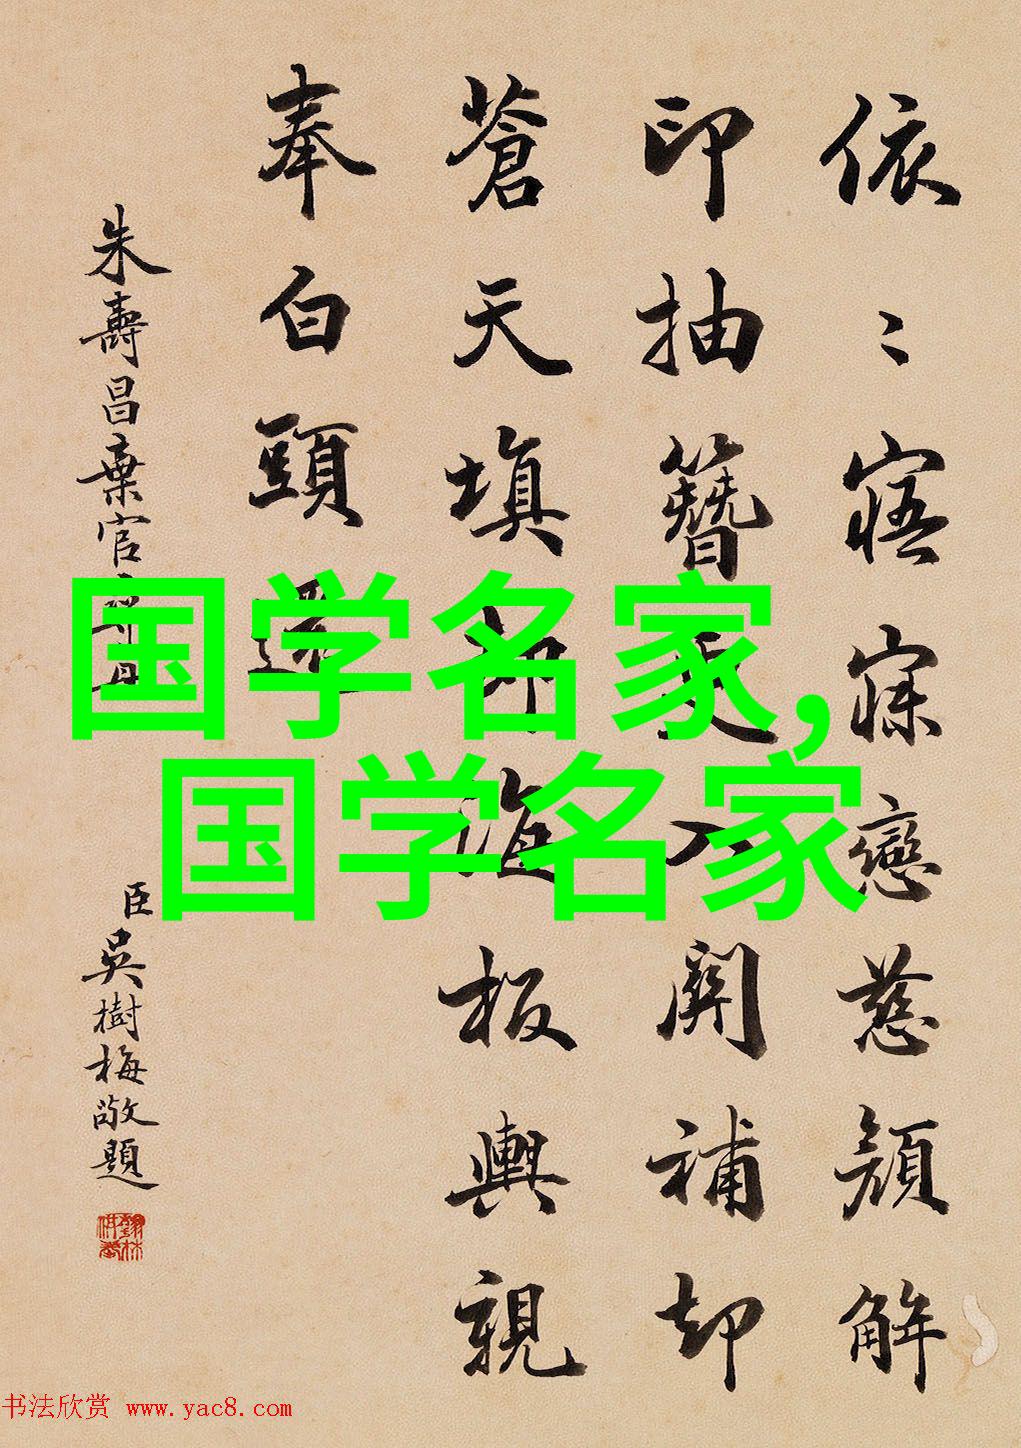 依〻寤寐戀慈顏解
印抽簪更入關補却
蒼天填
海板輿親
奉白頭還
朱壽昌棄官尋母
臣吳樹梅敬題
国学名家,
国学名家
书法欣赏 www.yac8.com